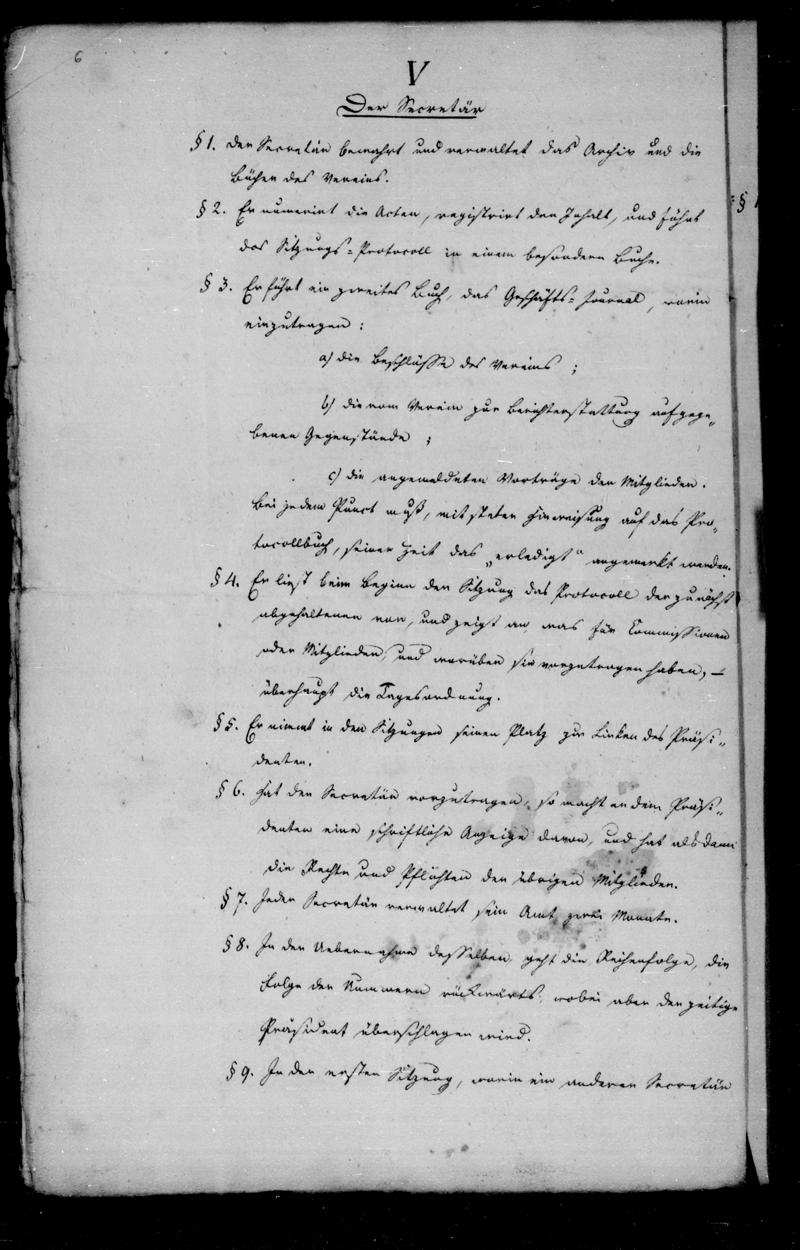 6
V
Der Secretär
§ 1. Der Secretär bewahrt und verwaltet das Archiv und die
Bücher des Vereins.
§ 2. Er numerirt die Acten, registrirt den Inhalt, und führt
das Sitzungs-Protocoll in einem besondern Buche.
§ 3. Er führt ein zweites Buch, das Geschäfts-Journal, worin
einzutragen:
a) die Beschlüsse des Vereins;
b) die vom Verein zur Berichterstattung aufgege„
benen Gegenstände;
c) die angemeldeten Vorträge der Mitglieder.
Bei jedem Punct muß, mit steter Hinweisung auf das Pro„
tocollbuch, seiner Zeit das „erledigt“ angemerkt werden.
§ 4. Er liest beim Beginn der Sitzung das Protocoll der zunächst
abgehaltenen vor, und zeigt an, was für Commissionen
oder Mitglieder, und worüber sie vorzutragen haben, –
überhaupt die Tagesordnung.
§ 5. Er nimmt in den Sitzungen seinen Platz zur Linken des Präsi„
denten.
§ 6. Hat der Secretär vorzutragen, so macht er dem Präsi„
denten eine schriftliche Anzeige davon, und hat alsdann
die Rechte und Pflichten der übrigen Mitglieder.
§ 7. Jeder Secretär verwaltet sein Amt zwei Monate.
§ 8. In der Uebernahme desselben geht die Reihenfolge, die
Folge der Nummern rückwärts, wobei aber der zeitige
Präsident überschlagen wird.
§ 9. In der ersten Sitzung, worin ein anderer Secretär
§ 1